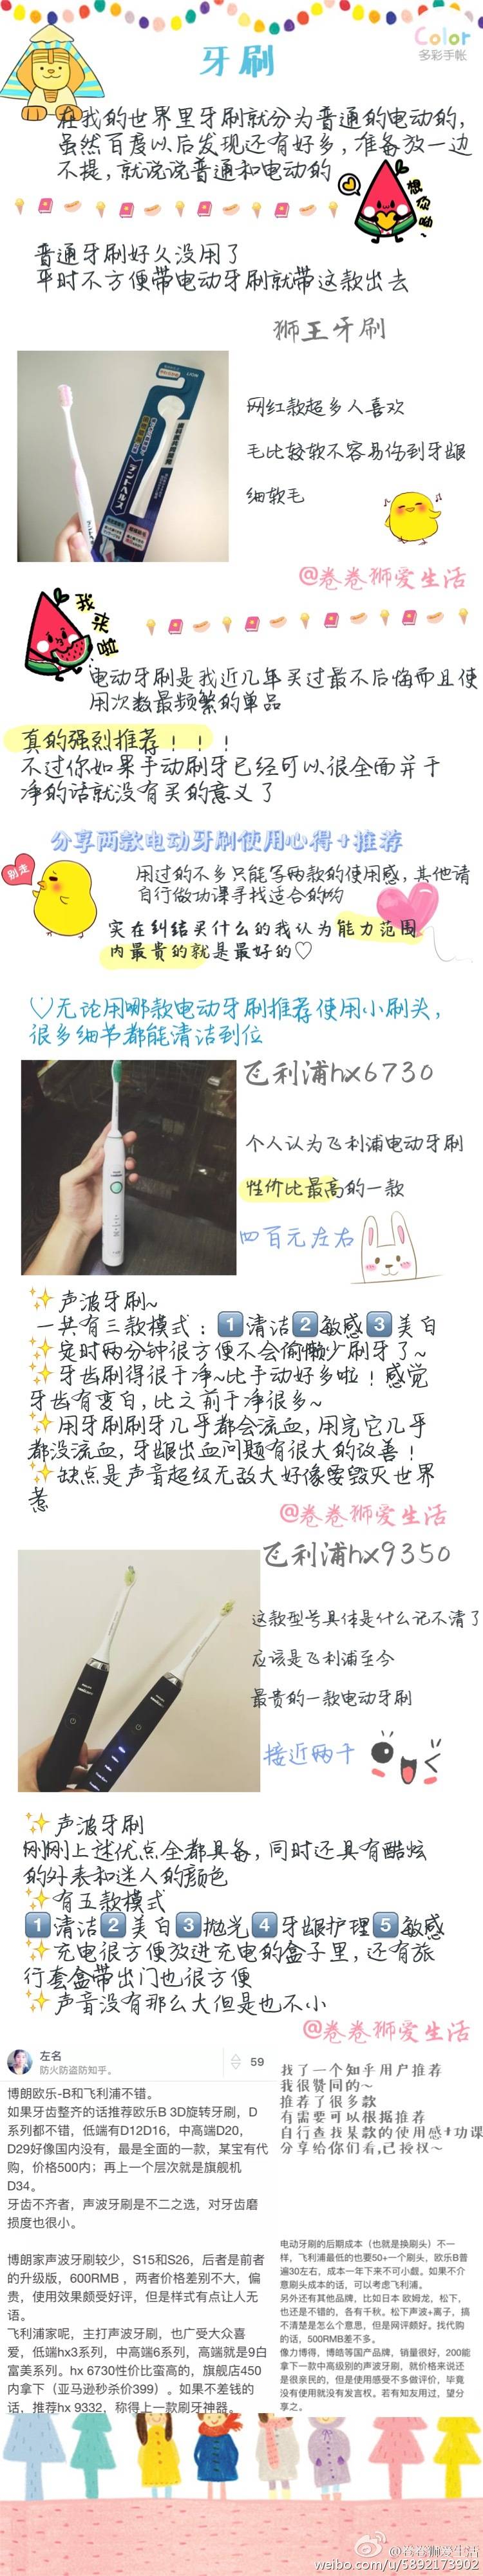 Color
多彩手帐
牙刷
在我的世界里牙刷就分为普通的电动的,
虽然百度以后发现还有好多,准备放一边
不提,就说说普通和电动的
普通牙刷好久没用了
平时不方便带电动牙刷就带这款出去
狮王牙刷
网红款超多人喜欢
毛比较软不容易伤到牙龈
细软毛
@卷卷狮爱生活
我来啦
电动牙刷是我近几年买过最不后悔而且使
用次数最频繁的单品
真的强烈推荐!!!
不过你如果手动刷牙已经可以很全面并干
净的话就没有买的意义了
分享两款电动牙刷使用心得+推荐
别走
用过的不多只能写两款的使用感,其他请
自行做功课寻找适合的哟
实在纠结买什么的我认为能力范围
内最贵的就是最好的♡
♡无论用哪款电动牙刷推荐使用小刷头,
很多细节都能清洁到位
飞利浦hx6730
个人认为飞利浦电动牙刷
性价比最高的一款
四百元左右
✨声波牙刷~
一共有三款模式:1清洁2敏感3美白
✨定时两分钟很方便不会偷懒少刷牙了~
✨牙齿刷得很干净~比手动好多啦!感觉
牙齿有变白,比之前干净很多~
✨用牙刷刷牙几乎都会流血,用完它几乎
都没流血,牙龈出血问题有很大的改善!
✨缺点是声音超级无敌大好像要毁灭世界
惹
@卷卷狮爱生活
飞利浦hx9350
这款型号具体是什么记不清了
应该是飞利浦至今
最贵的一款电动牙刷
接近两千
✨声波牙刷
刚刚上述优点全都具备,同时还具有酷炫
的外表和迷人的颜色
✨有五款模式
1清洁2美白3抛光4牙龈护理5敏感
✨充电很方便放进充电的盒子里,还有旅
行套盒带出门也很方便
✨声音没有那么大但是也不小
@卷卷狮爱生活
左名
防火防盗防知乎。
59
博朗欧乐-B和飞利浦不错。
如果牙齿整齐的话推荐欧乐B 3D旋转牙刷,D
系列都不错,低端有D12D16,中高端D20,
D29好像国内没有,最是全面的一款,某宝有代
购,价格500内;再上一个层次就是旗舰机
D34。
牙齿不齐者,声波牙刷是不二之选,对牙齿磨
损度也很小。
博朗家声波牙刷较少,S15和S26,后者是前者
的升级版,600RMB ,两者价格差别不大,偏
贵,使用效果颇受好评,但是样式有点让人无
语。
飞利浦家呢,主打声波牙刷,也广受大众喜
爱,低端hx3系列,中高端6系列,高端就是9白
富美系列。hx 6730性价比蛮高的,旗舰店450
内拿下(亚马逊秒杀价399)。如果不差钱的
话,推荐hx 9332,称得上一款刷牙神器。
找了一个知乎用户推荐
我很赞同的~
推荐了很多款
有需要可以根据推荐
自行查找某款的使用感+功课
分享给你们看,已授权~
电动牙刷的后期成本(也就是换刷头)不一
样,飞利浦最低的也要50+一个刷头,欧乐B普
遍30左右,成本一年下来不可小觑。如果不介
意刷头成本的话,可以考虑飞利浦。
另外还有其他品牌,比如日本 欧姆龙,松下,
也还是不错的,各有千秋。松下声波+离子,搞
不清楚是怎么个意思,但是网评颇好。找代购
的话,500RMB差不多。
像力博得,博皓等国产品牌,销量很好,200能
拿下一款中高级别的声波牙刷,就价格来说还
是很亲民的,但是使用感受不多做评价,毕竟
没有使用就没有发言权。若有知友用过,望分
享之。
@卷卷狮爱生活
weibo.com/u/5892173902